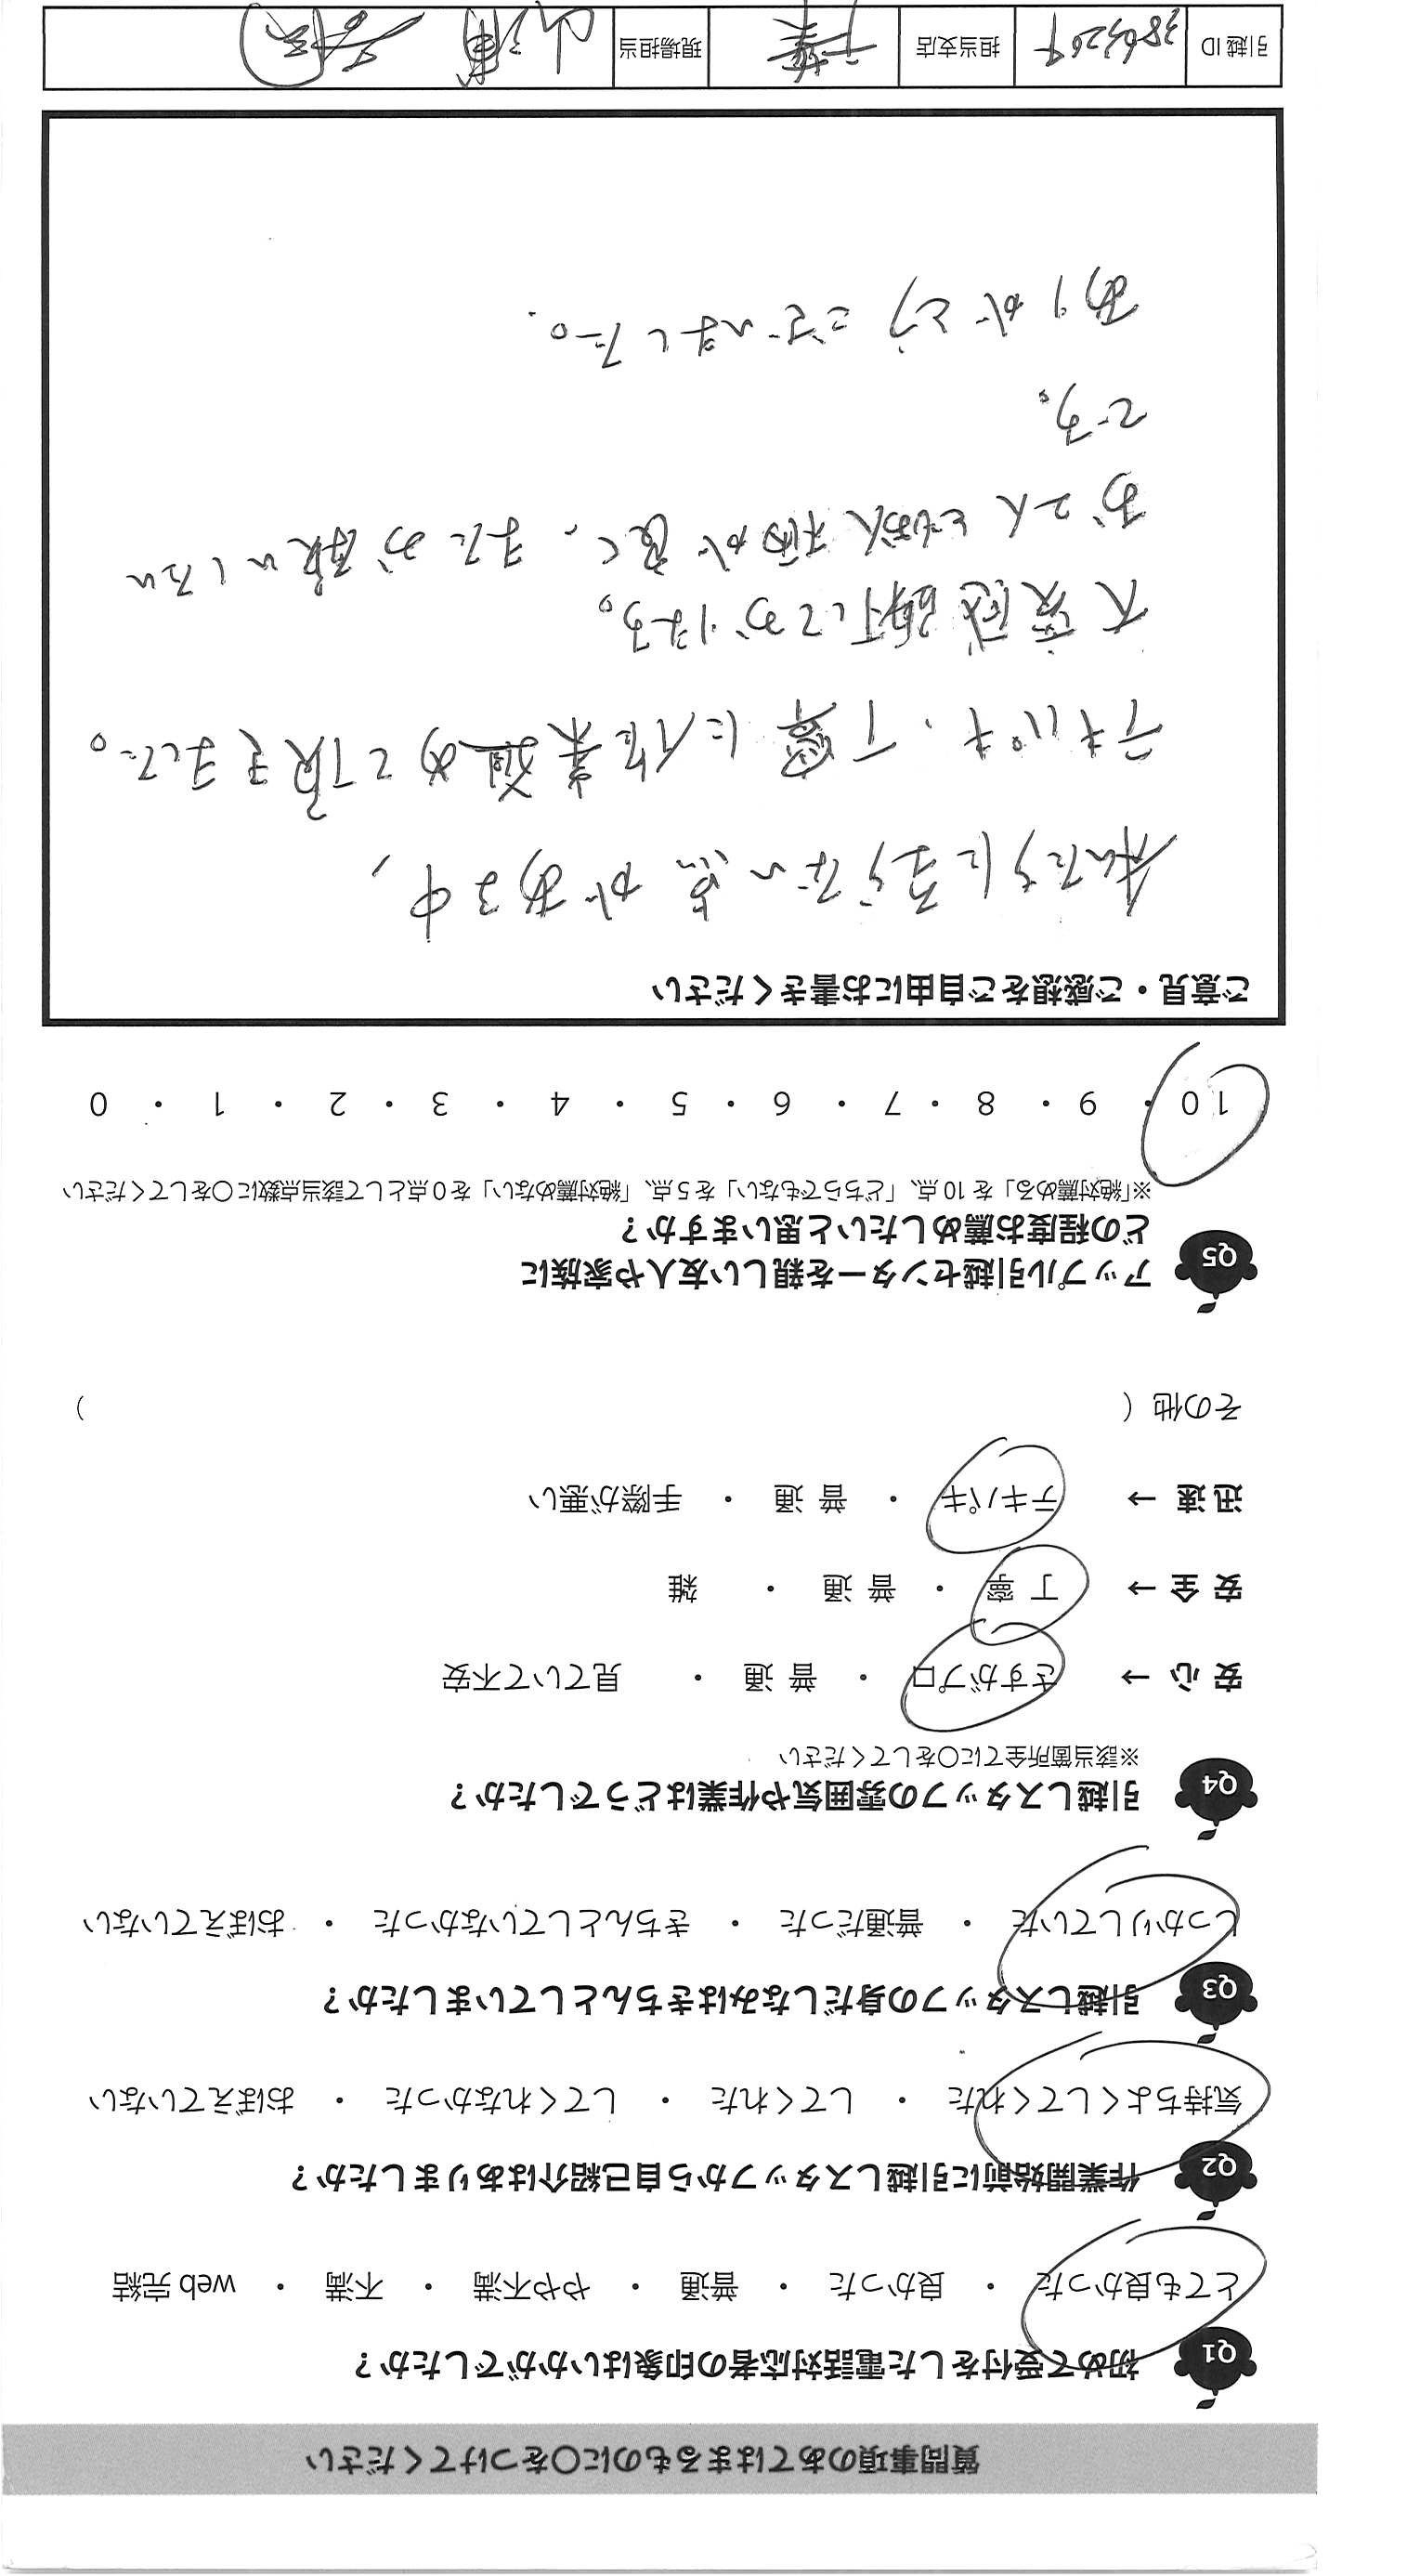 質問事項のあてはまるものに〇をつけてください
Q1 初めて受付をした電話対応者の印象はいかがでしたか？
とても良かった ・ 良かった ・ 普通 ・ やや不満 ・ 不満 ・ web 完結
Q2 作業開始前に引越しスタッフから自己紹介はありましたか？
気持ちよくしてくれた ・ してくれた ・ してくれなかった ・ おぼえていない
Q3 引越しスタッフの身だしなみはきちんとしていましたか？
しっかりしていた ・ 普通だった ・ きちんとしていなかった ・ おぼえていない
Q4 引越しスタッフの雰囲気や作業はどうでしたか？
※該当箇所全てに〇をしてください
安 心 → さすがプロ ・ 普 通 ・ 見ていて不安
安 全 → 丁 寧 ・ 普 通 ・ 雑
迅 速 → テキパキ ・ 普 通 ・ 手際が悪い
その他（ ）
Q5 アップル引越センターを親しい友人や家族に
どの程度お薦めしたいと思いますか？
※「絶対薦める」を 10 点、「どちらでもない」を 5 点、「絶対薦めない」を 0 点として該当点数に〇をしてください
10 ・ 9 ・ 8 ・ 7 ・ 6 ・ 5 ・ 4 ・ 3 ・ 2 ・ 1 ・ 0
ご意見・ご感想をご自由にお書きください
私たちに至らない点がある中、
テキパキ、丁寧に作業進めて頂きました。
大変感謝しております。
お2人とも愛想が良く、またお願いしたい
です。
ありがとうございました。
引越 ID 担当支店 千葉 現場担当 山浦